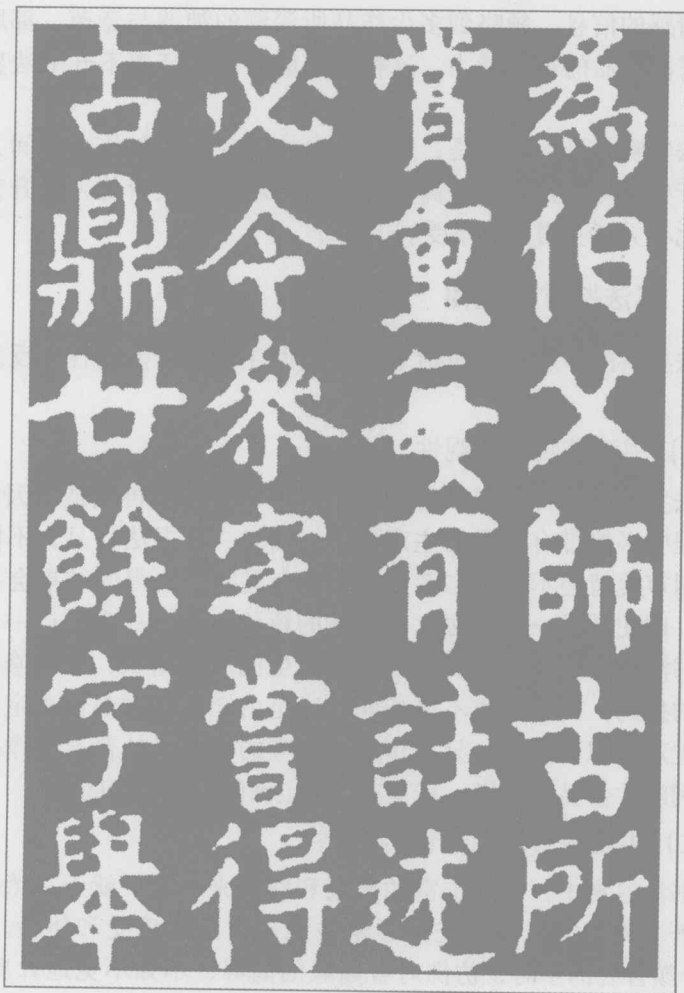 為伯父師古所
賞重每有註述
必令參定嘗得
古鼎廿餘字舉